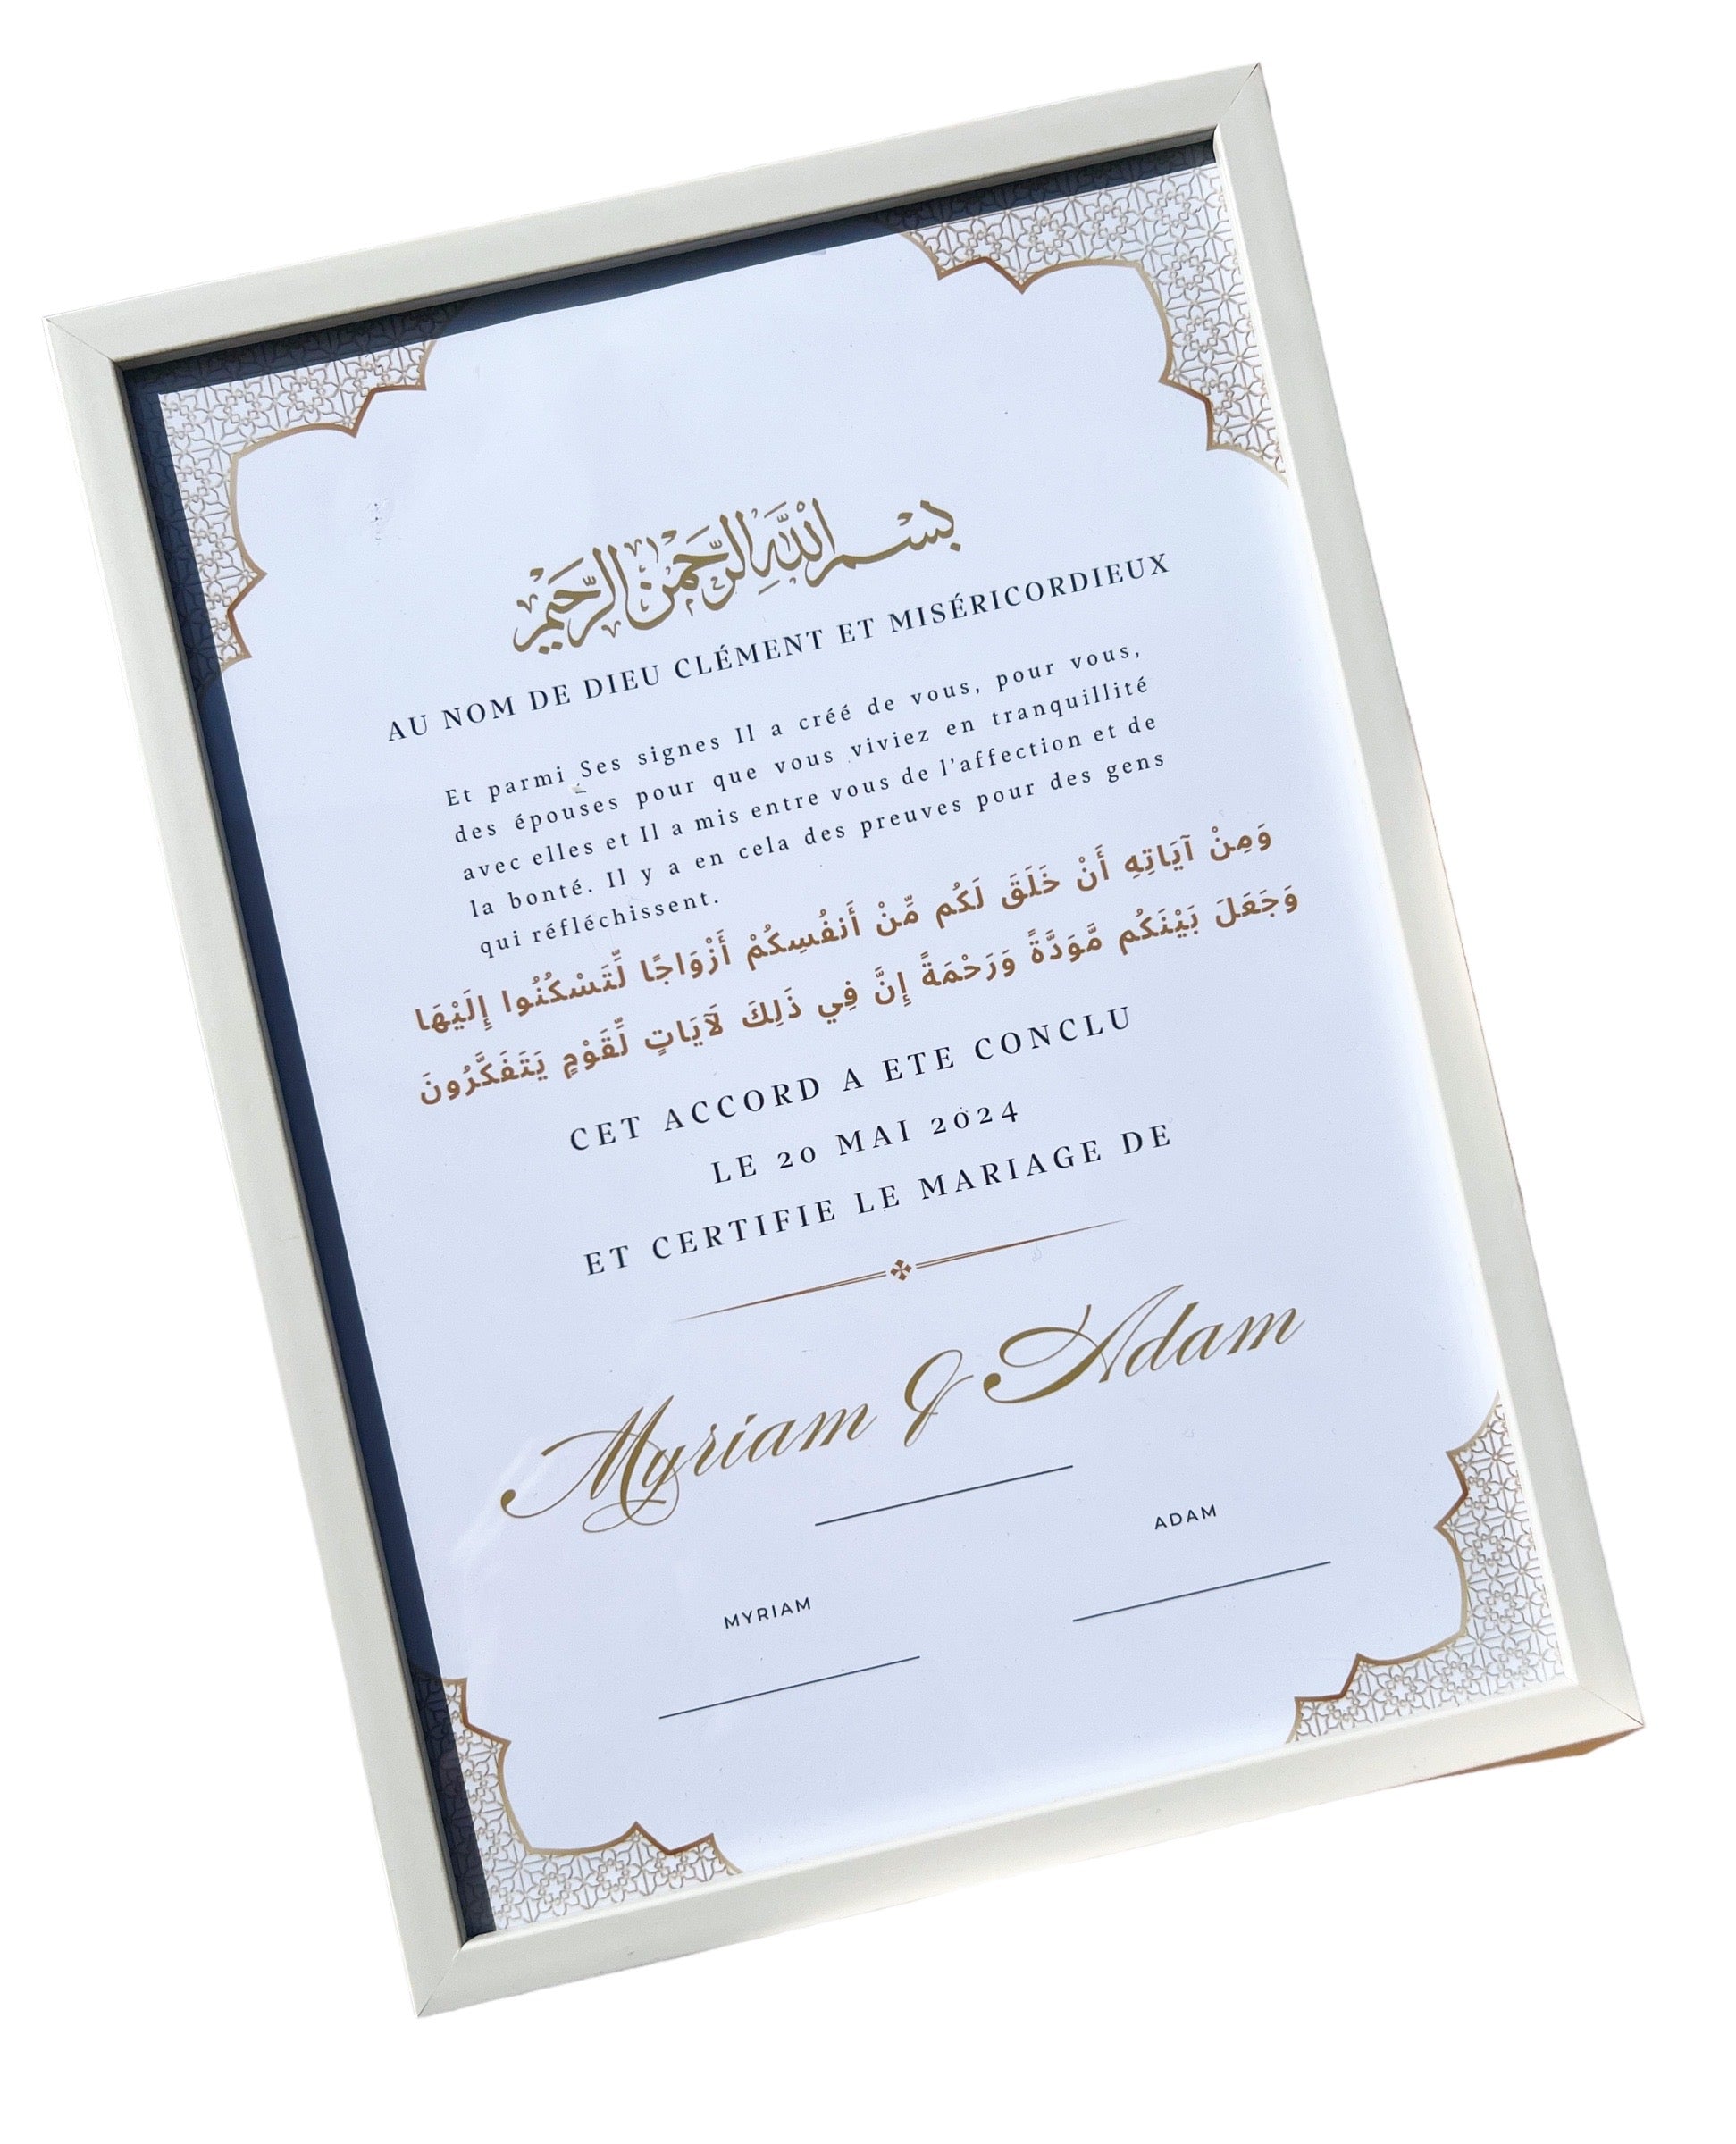 بسم الله الرحمن الرحيم
AU NOM DE DIEU CLÉMENT ET MISÉRICORDIEUX
Et parmi Ses signes Il a créé de vous, pour vous,
des épouses pour que vous viviez en tranquillité
avec elles et Il a mis entre vous de l'affection et de
la bonté. Il y a en cela des preuves pour des gens
qui réfléchissent.
وَمِنْ آيَاتِهِ أَنْ خَلَقَ لَكُم مِّنْ أَنفُسِكُمْ أَزْوَاجًا لِّتَسْكُنُوا إِلَيْهَا
وَجَعَلَ بَيْنَكُم مَّوَدَّةً وَرَحْمَةً إِنَّ فِي ذَلِكَ لَآيَاتٍ لِّقَوْمٍ يَتَفَكَّرُونَ
CET ACCORD A ETE CONCLU
LE 20 MAI 2024
ET CERTIFIE LE MARIAGE DE
Myriam & Adam
MYRIAM
ADAM